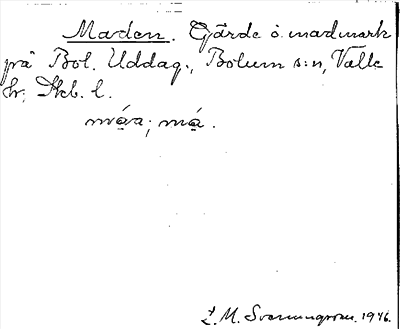 Maden. Gärde o. madmark
på Bol. Uddag., Bolum s:n, Valle
hr; Skb. l.
måa; må.
L. M. Svenungsson. 1946.